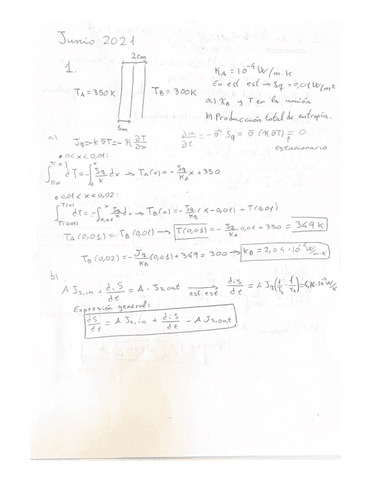 Junio 2021
1.
2cm
T_A = 350K
T_B = 300K
1cm
K_A = 10⁻⁴ W/m·K
En est est → J_q = 0,01 W/m²
a) K_B y T en la unión
b) Producción total de entropía.
a) J_q = -K ∇T = -K ∂T/∂x
∂u/∂t = -∇·J_q = ∇(K∇T) = 0
estacionario
• 0 < x < 0,01:
∫ dT = -∫₀ˣ J_q/K_A dx → T_A(x) = -J_q/K_A x + 350
• 0,01 < x < 0,02:
∫ dT = -∫ J_q/K_B dx → T_B(x) = -J_q/K_B (x - 0,01) + T(0,01)
T_A(0,01) = T_B(0,01) → T(0,01) = -J_q/K_A 0,01 + 350 = 349K
T_B(0,02) = -J_q/K_B (0,01) + 349 = 300 → K_B = 2,04·10⁻⁶ W/m·K
b)
A J_s,in + d_iS/dt = A·J_s,out → est. est d_iS/dt = A J_q (1/T_B - 1/T_A) = 4,76·10⁻⁶ W/K
Expresión general:
dS/dt = A J_s,in + d_iS/dt - A J_s,out